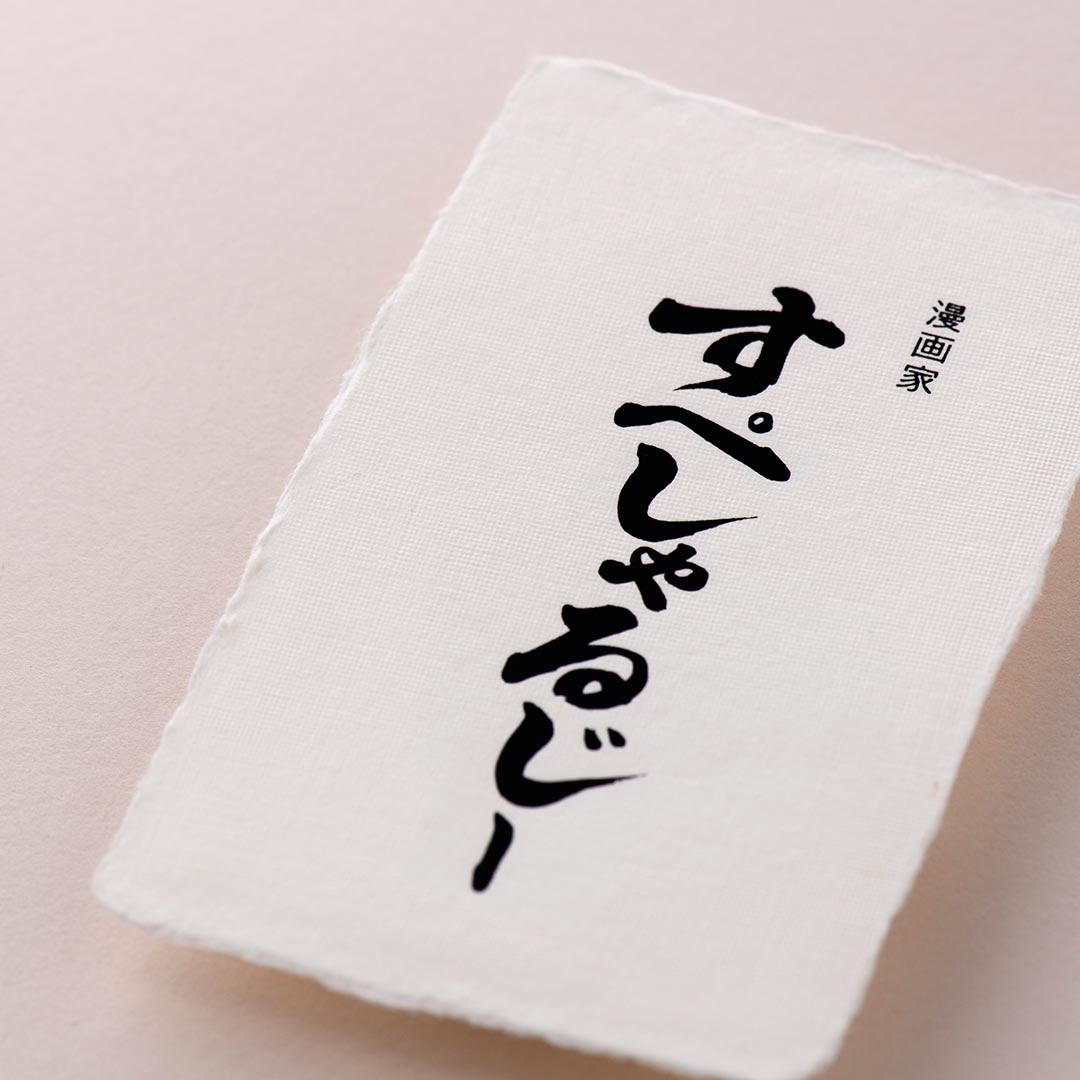 漫画家
すぺしゃるじー